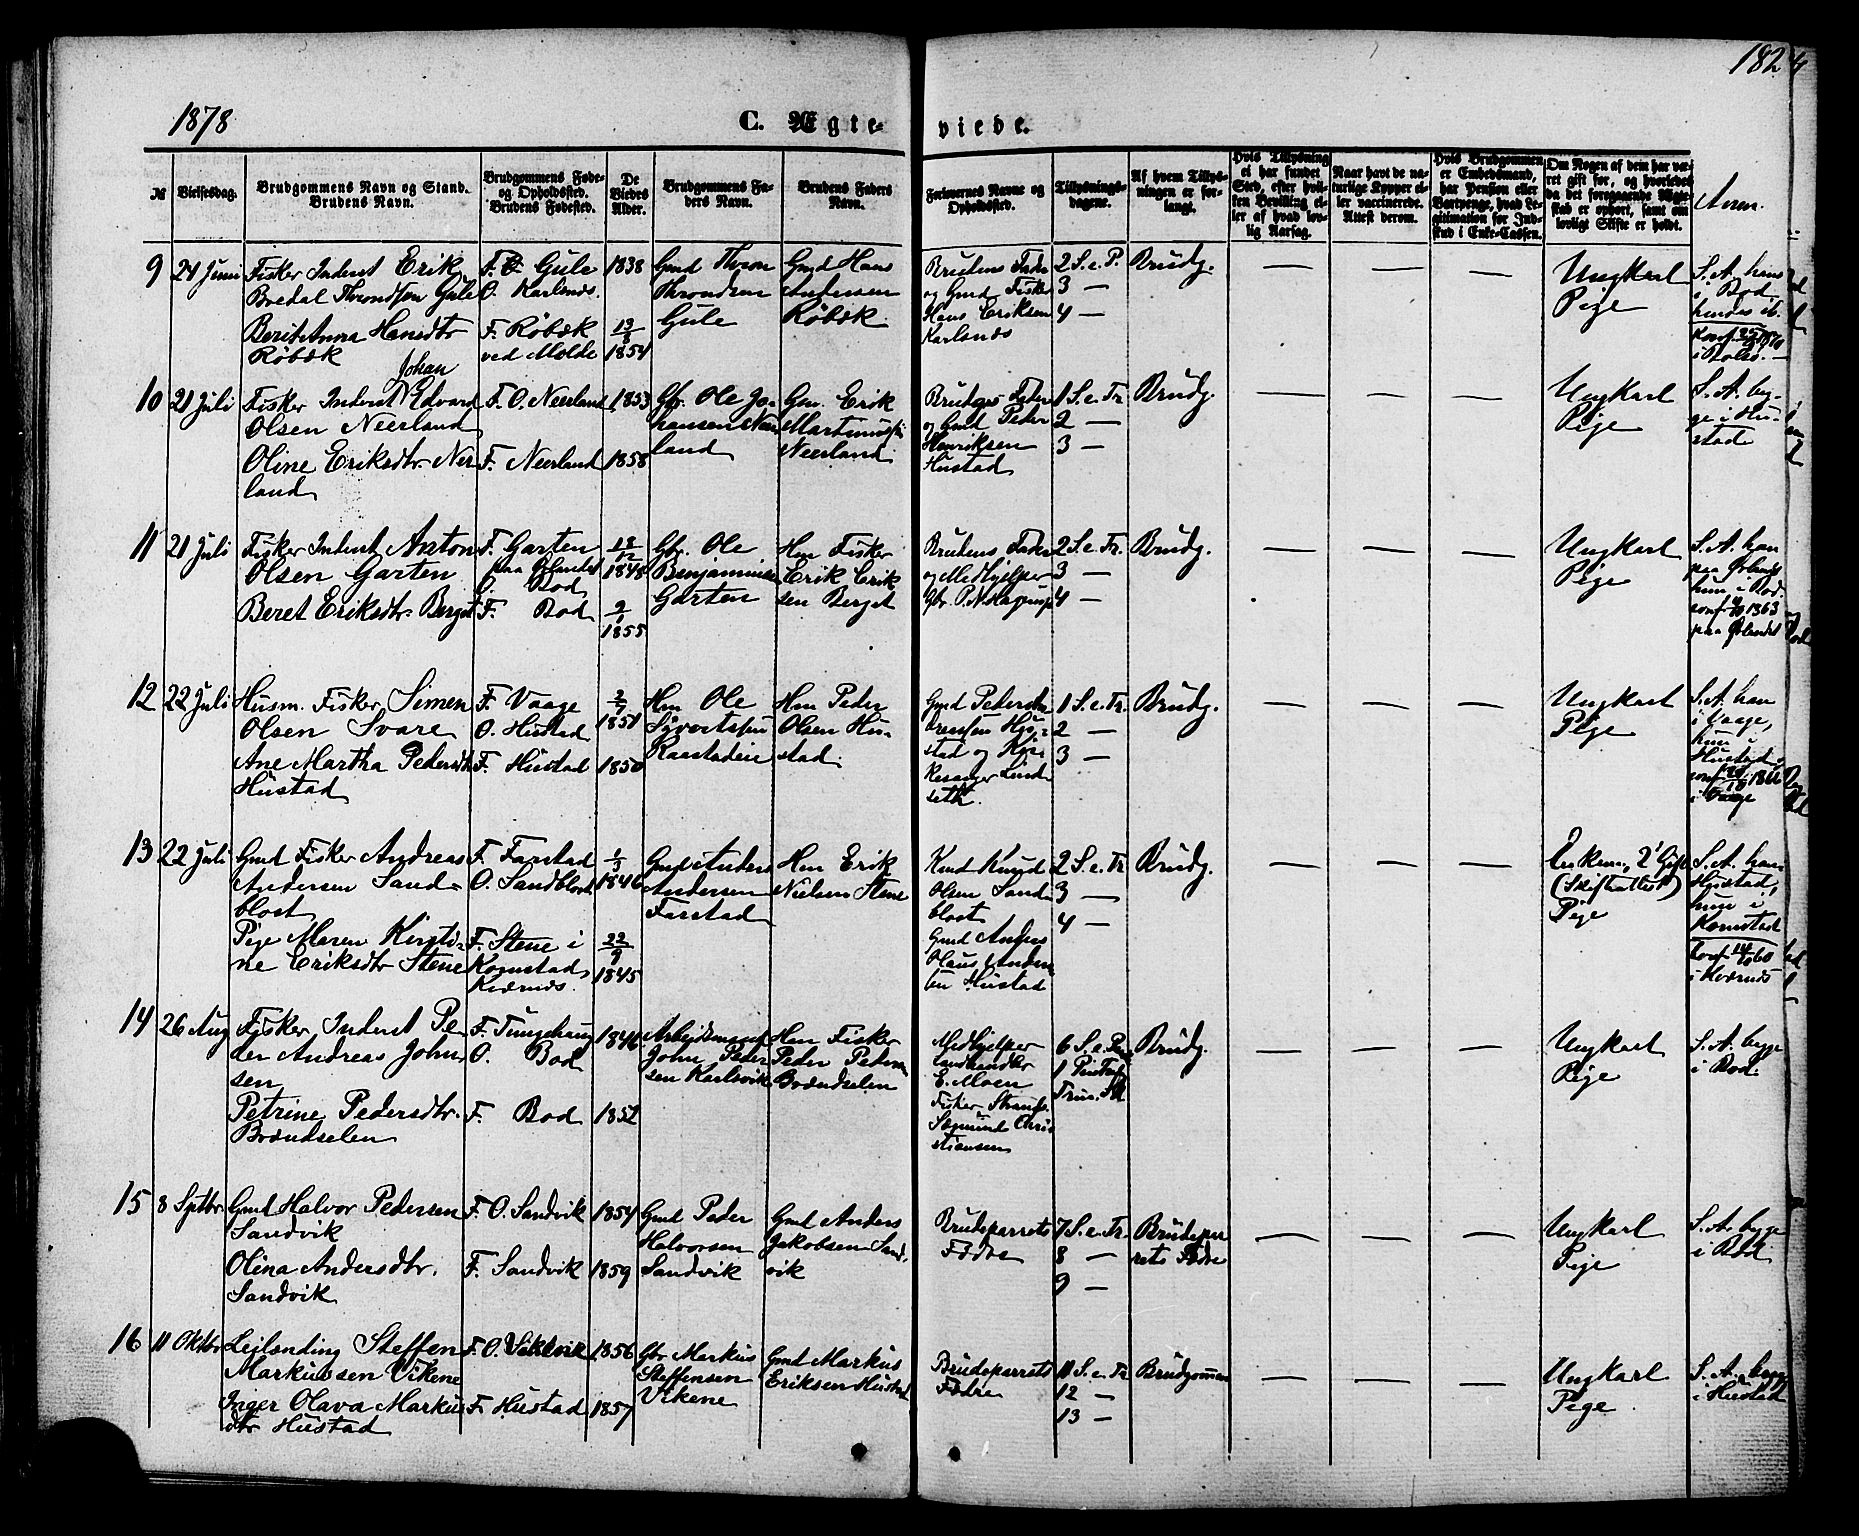 1878
C. Ægte-
viede.
182
№
Vielsesdag.
Brudgommens Navn og Stand.
Brudens Navn.
Brudgommens Føde-
og Opholdssted.
Brudens Fødested.
De
Viedes
Alder.
Brudgommens Fa-
ders Navn.
Brudens Faders
Navn.
Forlovernes Navne og
Opholdssted.
Tillysnings-
dagene.
Af hvem Tillys-
ningen er for-
langt.
Hvis Tillysning
ei har fundet
Sted, efter hvil-
ken Bevilling el-
ler af hvad lov-
lig Aarsag.
Naar havt de na-
turlige Kopper el-
ler vaccinerede.
Attest derom.
Hvis Brudgommen
er Embedsmand,
har Pension eller
Om Nogen af dem har væ-
ret gift før, og hvorledes
da det foregaaende Ægte-
skab er ophørt, samt om
lovligt Skifte er holdt.
Anm.
9
24 Juni
Fisker Inderst Erik
Bredal Throndsen Gule
Berit Anna Hansdtr
Røbæk
F. Gule
O. Karlsnds.
F. Røbæk
ved Molde
1838
13/8
1854
Gmd Thron
Throndsen
Gule
Gmd Hans
Andersen
Røbæk
Brudens Fader
og Gmd Fisker
Hans Eriksen
Karlsnds
2 S. e. P.
3 —
4 —
Brudg.
—
—
—
Ungkarl
Pige
S. A. han
i Bod
hendes ib.
10
21 Juli
Johan
Fisker Inderst Edvard
Olsen Neerland
Oline Eriksdtr. Ner
land
F. O. Neerland
F. Neerland
1853
1858
Gbr. Ole Jo-
hansen Neer
land
Gm. Erik
Martinussen
Neerland
Brudens Fader
og Gmd Peder
Henriksen
Hustad
1 S. e. Tr.
2 —
3 —
Brudg.
—
—
—
Ungkarl
Pige
S. A. byg-
ge i Hu-
stad
11
21 Juli
Fisker Inderst Anton
Olsen Garten
Beret Eriksdtr. Berget
F. Garten
paa Ørlandet
O. Bod
F. Bod
18/12
1848
2/1
1855
Gbr. Ole
Benjaminsen
Garten
Hm Fisker
Erik Erik
sen Berget
Brudens Fader
og Medhjelper
Gbr. P. N. Hagerup
2 S. e. Tr.
3 —
4 —
Brudg.
—
—
—
Ungkarl
Pige
S. A. han
paa Ørlands
hun i Bod.
conf 1863
paa Ørlandet
12
22 Juli
Husm. Fisker Simen
Olsen Svare
Ane Martha Pedersdtr
Hustad
F. Vaage
O. Hustad
F. Hustad
2/7
1851
1850
Hm Ole
Syvertsen
Raastadeie
Hm Peder
Olsen Hu-
stad
1 S. e. Tr.
2 —
3 —
Brudg.
—
—
—
Ungkarl
Pige
S. A. han
i Vaage,
hun i
Hustad
i Vaage
13
22 Juli
Gmd Fisker Andreas
Andersen Sand-
blost
Pige Maren Kirsti-
ne Eriksdtr Stene
F. Farstad
O. Sandblost
F. Stene i
Kornstad,
Kværnes.
1/3
1846
22/9
1845
Gmd Anders
Andersen
Farstad
Hm Erik
Nielsen Stene
Gmd Knud
Olsen Sand
blost
Gmd Anders
Olaus Ander
sen Hustad
2 S. e. Tr.
3 —
4 —
Brudg.
—
—
—
Enkem., 2' Gift
(Skifteattest)
Pige
S. A. han
Hustad,
hun i
Kornstad
Conf 14/10 60
i Kværnes
14
26 Aug
Fisker Inderst Pe
der Andreas John
sen
Petrine Pedersdtr.
Brændselen
F. Tungehaug
O. Bod
F. Bod
1846
1852
Arbeidsmand
John Peder
sen Karlsvik
Hm Fisker
Peder Peders
Brændselen
Medhjelper
Landhandler
E. Moen
Fisker Strands.
Sæmund Chri
stiansen
Brudg.
—
—
—
Ungkarl
Pige
S. A. bygge
i Bod.
15
8 Septbr
Gmd Halvor Pedersen
Sandvik
Olina Andersdtr.
Sandvik
F. O. Sandvik
F. Sandvik
1854
1859
Gmd Peder
Halvorsen
Sandvik
Gmd Anders
Jakobsen Sand-
vik
Brudeparrets
Fædre
7 S. e. Tr.
8 —
9 —
Brudepar
rets Fædre
—
—
—
Ungkarl
Pige
S. A. bygge
i Bod
16
11 Oktbr
Leilænding Steffen
Markussen Vikene
Inger Olava Markus
dtr Hustad
F. O. Vikene
F. Hustad
1856
1857
Gbr Markus
Steffensen
Vikene
Gmd Markus
Eriksen Hustad
Brudeparrets
Fædre
11 S. e. Tr
12 —
13 —
Brudgommen
—
—
—
Ungkarl
Pige
S. A. bygge
i Hustad